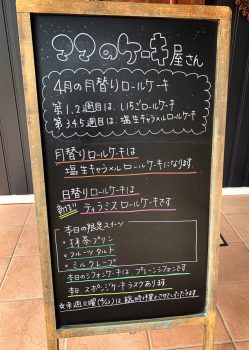 ママのケーキ屋さん
4月の月替りロールケーキ
第1.2週目は、いちごロールケーキ
第3.4.5週目は、塩生キャラメルロールケーキ
月替りロールケーキは
塩生キャラメルロールケーキになります。
日替りロールケーキは
新作 ティラミスロールケーキです
本日の限定スイーツ
・抹茶プリン
・フルーツタルト
・ミルクレープ
本日のシフォンケーキは プレーンシフォンです
本日、スポンジケーキラスクあります。
は臨時休業とさせていただきます